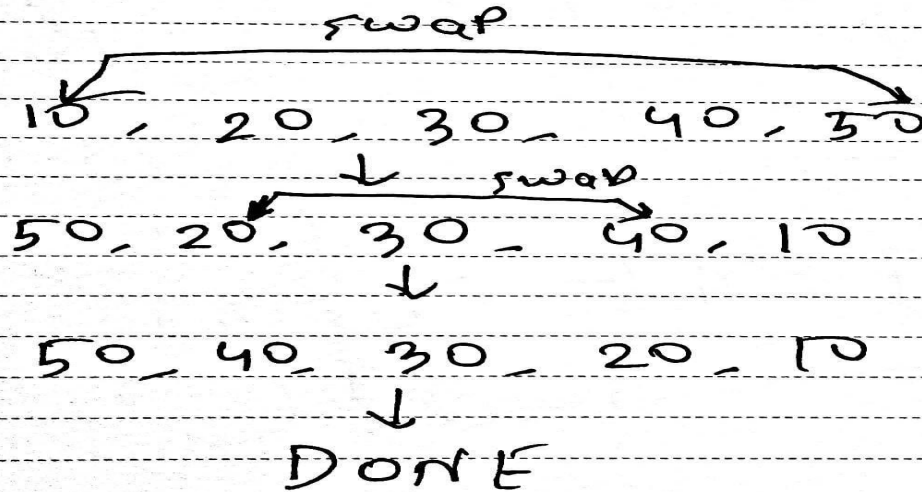 swap
10, 20, 30, 40, 50
swap
50, 20, 30, 40, 10
50, 40, 30, 20, 10
DONE